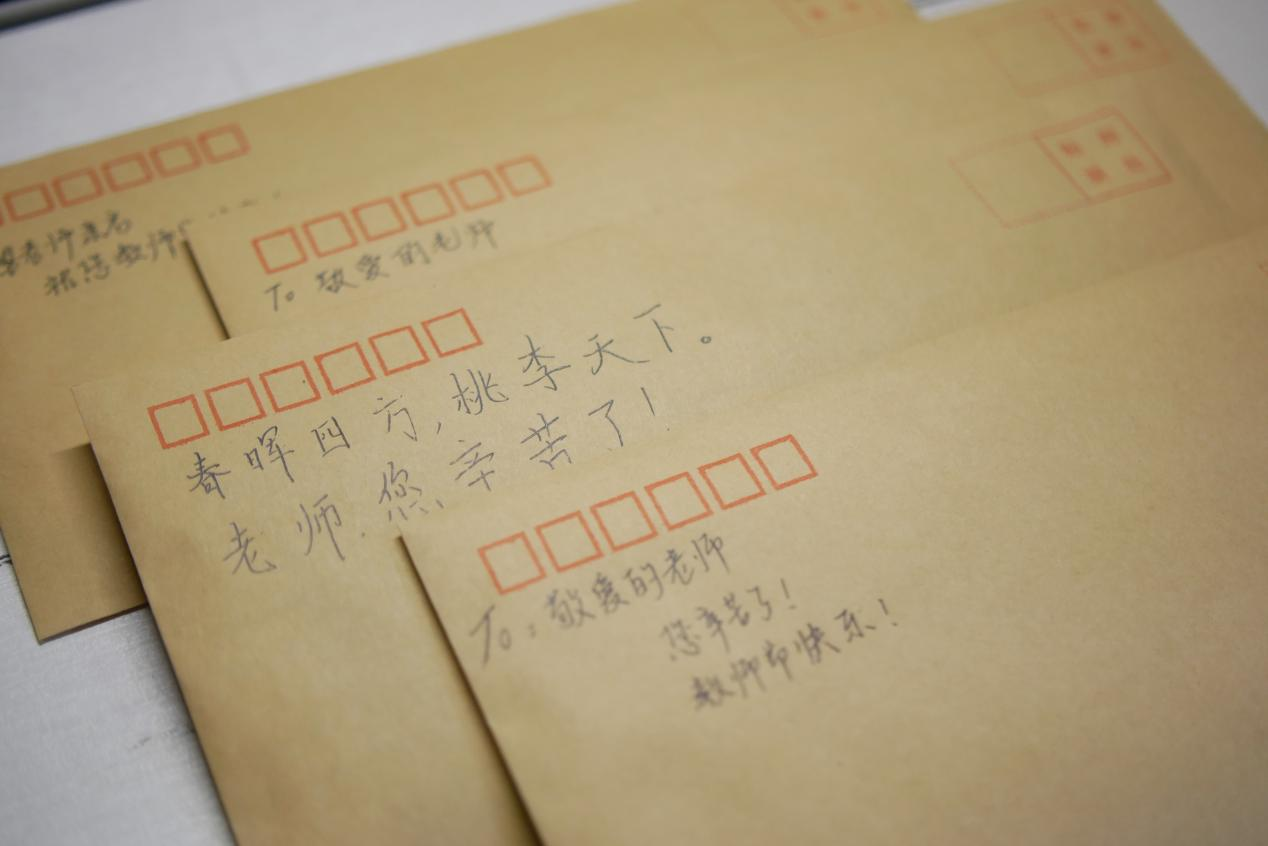 祝您教师
To 敬爱的老师
春晖四方,桃李天下。
老师.您辛苦了!
To:敬爱的老师
您辛苦了!
教师节快乐!